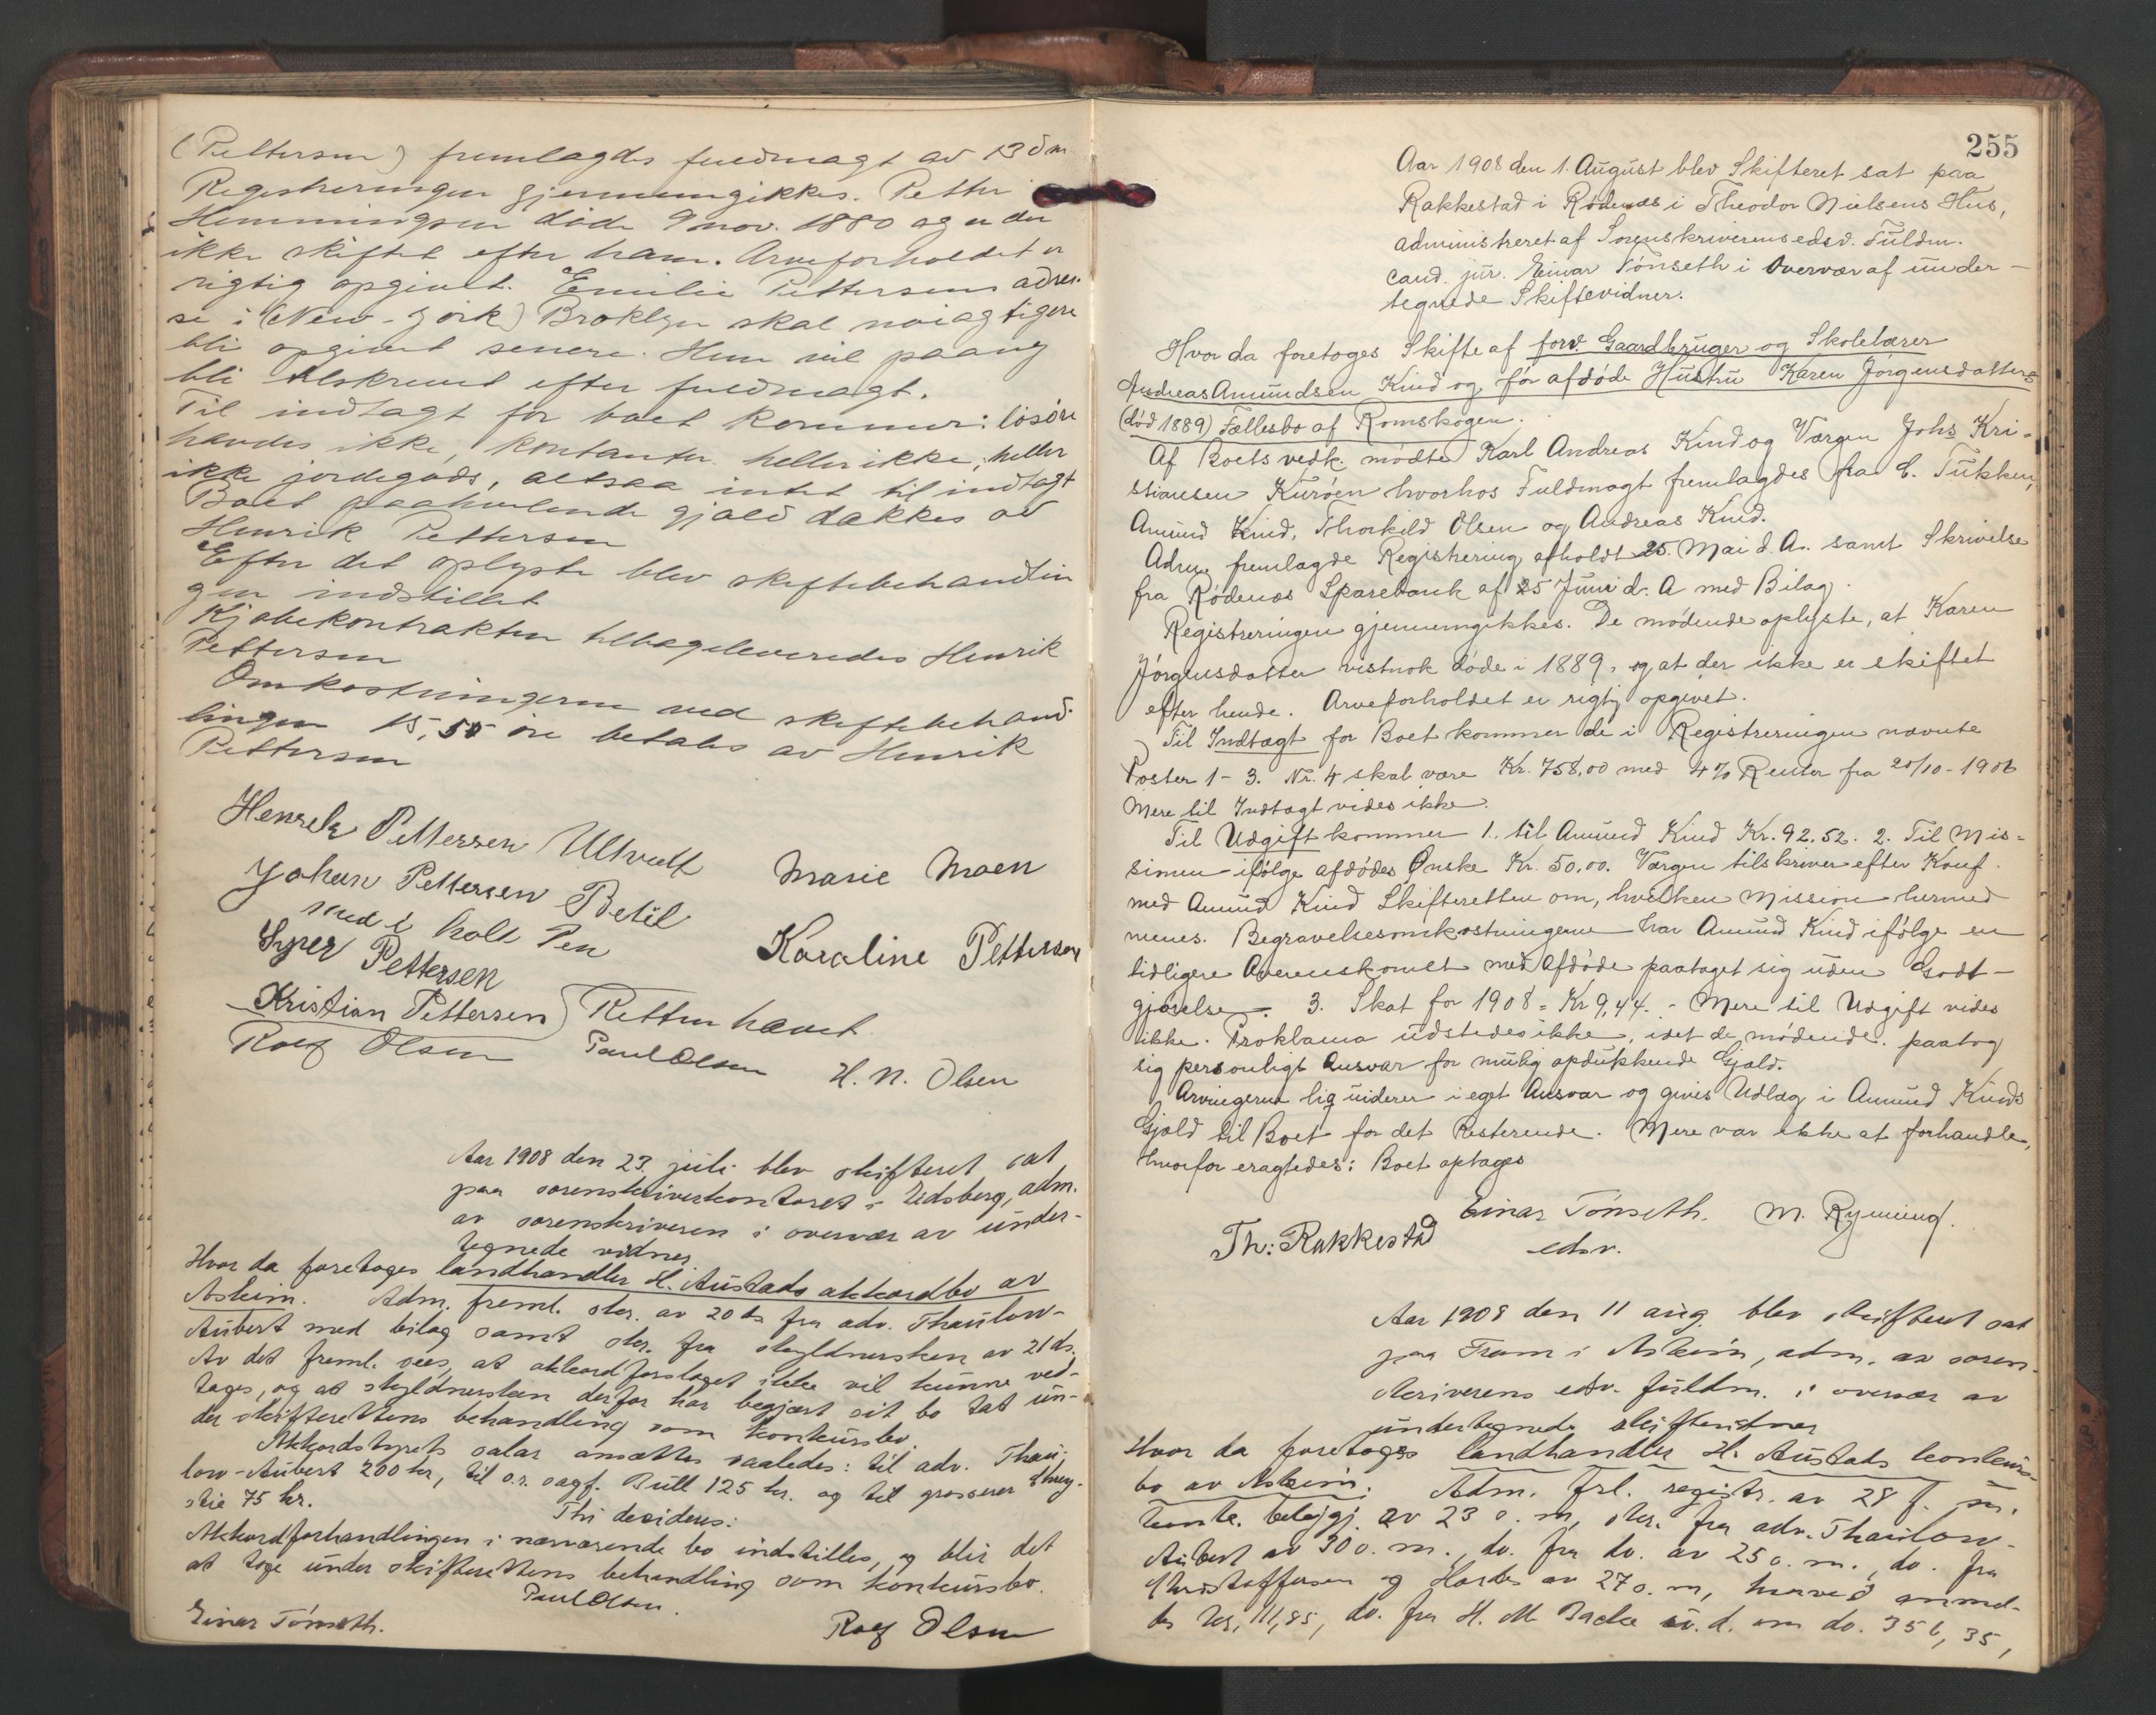 (Pettersen) fremlagdes fuldmagt av 13 dm
Registreringen gjennemgikkes. Petter
Hemmingsen døde 9 nov. 1880 og er der
ikke skiftet efter ham. Arveforholdet er
rigtig opgivet. Emilie Pettersens adres-
se i (New-York) Broklyn skal nøiagtigere
bli opgivet senere. Hun vil paany
bli tilskrevet efter fuldmagt.
Til indtægt for boet kommer: løsøre
havdes ikke, kontanter heller ikke, heller
ikke jordegods, altsaa intet til indtægt
Boet paahvilende gjæld dækkes av
Henrik Pettersen
Efter det oplyste blev skiftebehandlin
gen indstillet
Kjøbekontrakten tilbageleveredes Henrik
Pettersen
Omkostningerne ved skiftebehand-
lingen 15,55 øre betales av Henrik
Pettersen
Henrik Pettersen Ultvedt
Marie Moen
Johan Pettersen Betil
med i holt Pen
Karaline Pettersen
Syver Pettersen
Kristian Pettersen) Retten hævet.
Rolf Olsen Paul Olsen H. N. Olsen
Aar 1908 den 23. juli blev skifteret sat
paa sorenskriverkontoret i Eidsberg, adm.
av sorenskriveren i overvær av under-
tegnede vidner.
Hvor da foretoges landhandler H. Austads akkordbo av
Askim. Adm. freml. skr. av 20 ds fra adv. Thaulow-
Aubert med bilag samt skr. fra skyldnersken av 21 ds.
Av det freml. sees, at akkordforslaget ikke vil kunne ved-
tages, og at skyldnersken derfor har begjært sit bo tat un-
der skifterettens behandling som konkursbo.
Akkordstyrets salær ansættes saaledes: til adv. Thau-
low-Aubert 200 kr, til o.r. sagf. Bull 125 kr. og til grosserer
stie 75 kr.
Thi decideres:
Akkordforhandlingen i nærværende bo indstilles, og blir det
at tage under skifterettens behandling som konkursbo.
Paul Olsen.
Einar Tønseth.
Rolf Olsen
255
Aar 1908 den 1. August blev Skifteret sat paa
Rakkestad i Rødenæs i Theodor Nielsens Hus,
administreret af Sorenskriverens edsv. Fuldm.
cand. jur. Einar Tønseth i Overvær af under-
tegnede Skiftevidner.
Hvor da foretoges Skifte af forv. Gaardbruger og Skolelærer
Andreas Amundsen Kind og før afdøde Hustru Karen Jørgensdatters
(død 1889) Fællesbo af Romskogen.
Af Boets vedk. mødte Karl Andreas Kind og Værgen Johs Kri-
stiansen Kurøen hvorhos Fuldmagt fremlagdes fra C. Tukken,
Amund Kind, Thorkild Olsen og Andreas Kind.
Adm. fremlagde Registrering afholdt 25. Mai d. A. samt Skrivelse
fra Rødenæs Sparebank af 25 Juni d. A med Bilag.
Registreringen gjennemgikkes. De mødende oplyste, at Karen
Jørgensdatter vistnok døde i 1889, og at der ikke er skiftet
efter hende. Arveforholdet er rigtig opgivet.
Til Indtægt for Boet kommer de i Registreringen nævnte
Poster 1-3. Nr. 4 skal være Kr. 758,00 med 4% Renter fra 20/10-1906
Mere til Indtægt vides ikke.
Til Udgift kommer 1. til Amund Kind Kr. 92.52. 2. Til Mis-
sionen ifølge afdødes Ønske Kr. 50.00. Værgen tilskriver efter Konf.
med Amund Kind Skifteretten om, hvilken Mission hermed
menes. Begravelsesomkostningerne har Amund Kind ifølge en
tidligere Overenskomst med Afdøde paataget sig uden Godt-
gjørelse. 3. Skat for 1908 = Kr 9,44. - Mere til Udgift vides
ikke. Proklama udstedes ikke, idet de mødende paatog
sig personligt Ansvar for mulig opdukkende Gjæld.
Arvingerne liquiderer i eget Ansvar og gives Udlæg i Amund Kinds
Gjæld til Boet for det Resterende. Mere var ikke at forhandle,
hvorfor eragtedes: Boet optages
Einar Tønseth. M. Ryming.
Th: Rakkestad edsv.
Aar 1908 den 11 aug. blev skifteret sat
paa Fram i Askim, adm. av soren-
skriverens edsv. fuldm. i overvær av
undertegnede skiftevidner
Hvor da foretoges landhandler H. Austads konkurs-
bo av Askim. Adm. frl. registr. av 28 f. m.
av 23 o. m, skr. fra adv. Thaulow-
Aubert av 30 o. m., do. fra do. av 25 o. m., do. fra
Kristoffersen og av 27 o. m, hvorved anmel-
des kr. 111,85, do. fra H. M. Backe u. d. om do. 356,35,